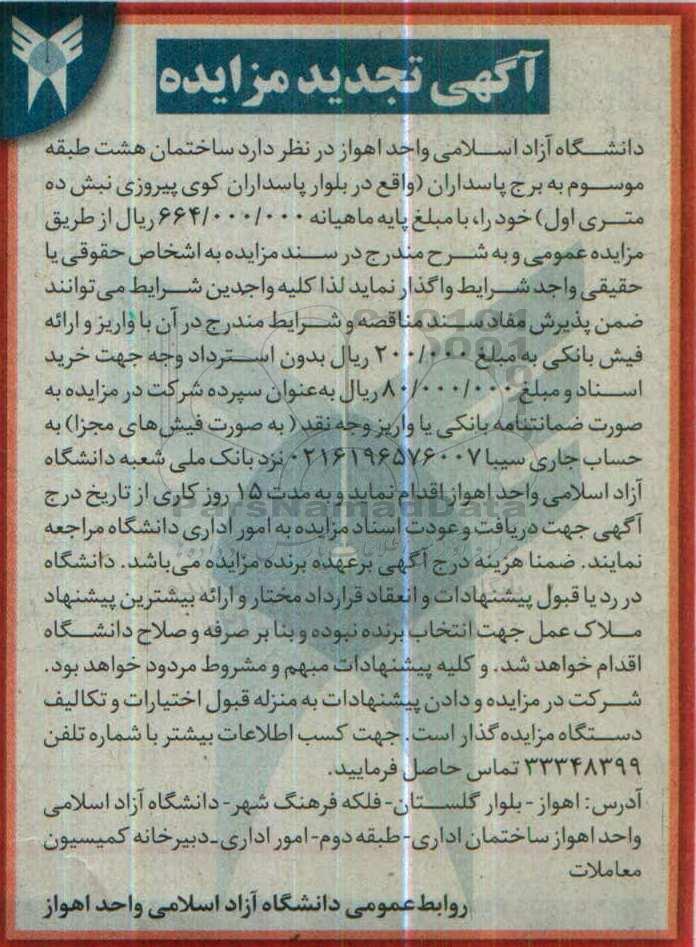 آگهی تجدید مزایده
دانشگاه آزاد اسلامی واحد اهواز در نظر دارد ساختمان هشت طبقه
موسوم به برج پاسداران (واقع در بلوار پاسداران کوی پیروزی نبش ده
متری اول) خود را، با مبلغ پایه ماهیانه ۶۶۴/۰۰۰/۰۰۰ ریال از طریق
مزایده عمومی و به شرح مندرج در سند مزایده به اشخاص حقوقی یا
حقیقی واجد شرایط واگذار نماید لذا کلیه واجدین شرایط می‌توانند
ضمن پذیرش مفاد سند مناقصه و شرایط مندرج در آن با واریز و ارائه
فیش بانکی به مبلغ ۲۰۰/۰۰۰ ریال بدون استرداد وجه جهت خرید
اسناد و مبلغ ۸۰/۰۰۰/۰۰۰ ریال به‌عنوان سپرده شرکت در مزایده به
صورت ضمانتنامه بانکی یا واریز وجه نقد ( به صورت فیش‌های مجزا) به
حساب جاری سیبا ۰۲۱۶۱۹۶۵۷۶۰۰۷ نزد بانک ملی شعبه دانشگاه
آزاد اسلامی واحد اهواز اقدام نماید و به مدت ۱۵ روز کاری از تاریخ درج
آگهی جهت دریافت و عودت اسناد مزایده به امور اداری دانشگاه مراجعه
نمایند. ضمنا هزینه درج آگهی برعهده برنده مزایده می‌باشد. دانشگاه
در رد یا قبول پیشنهادات و انعقاد قرارداد مختار و ارائه بیشترین پیشنهاد
ملاک عمل جهت انتخاب برنده نبوده و بنا بر صرفه و صلاح دانشگاه
اقدام خواهد شد. و کلیه پیشنهادات مبهم و مشروط مردود خواهد بود.
شرکت در مزایده و دادن پیشنهادات به منزله قبول اختیارات و تکالیف
دستگاه مزایده گذار است. جهت کسب اطلاعات بیشتر با شماره تلفن
۳۳۳۴۸۳۹۹ تماس حاصل فرمایید.
آدرس: اهواز - بلوار گلستان- فلکه فرهنگ شهر- دانشگاه آزاد اسلامی
واحد اهواز ساختمان اداری- طبقه دوم- امور اداری-دبیرخانه کمیسیون
معاملات
روابط عمومی دانشگاه آزاد اسلامی واحد اهواز
ParsNamadData